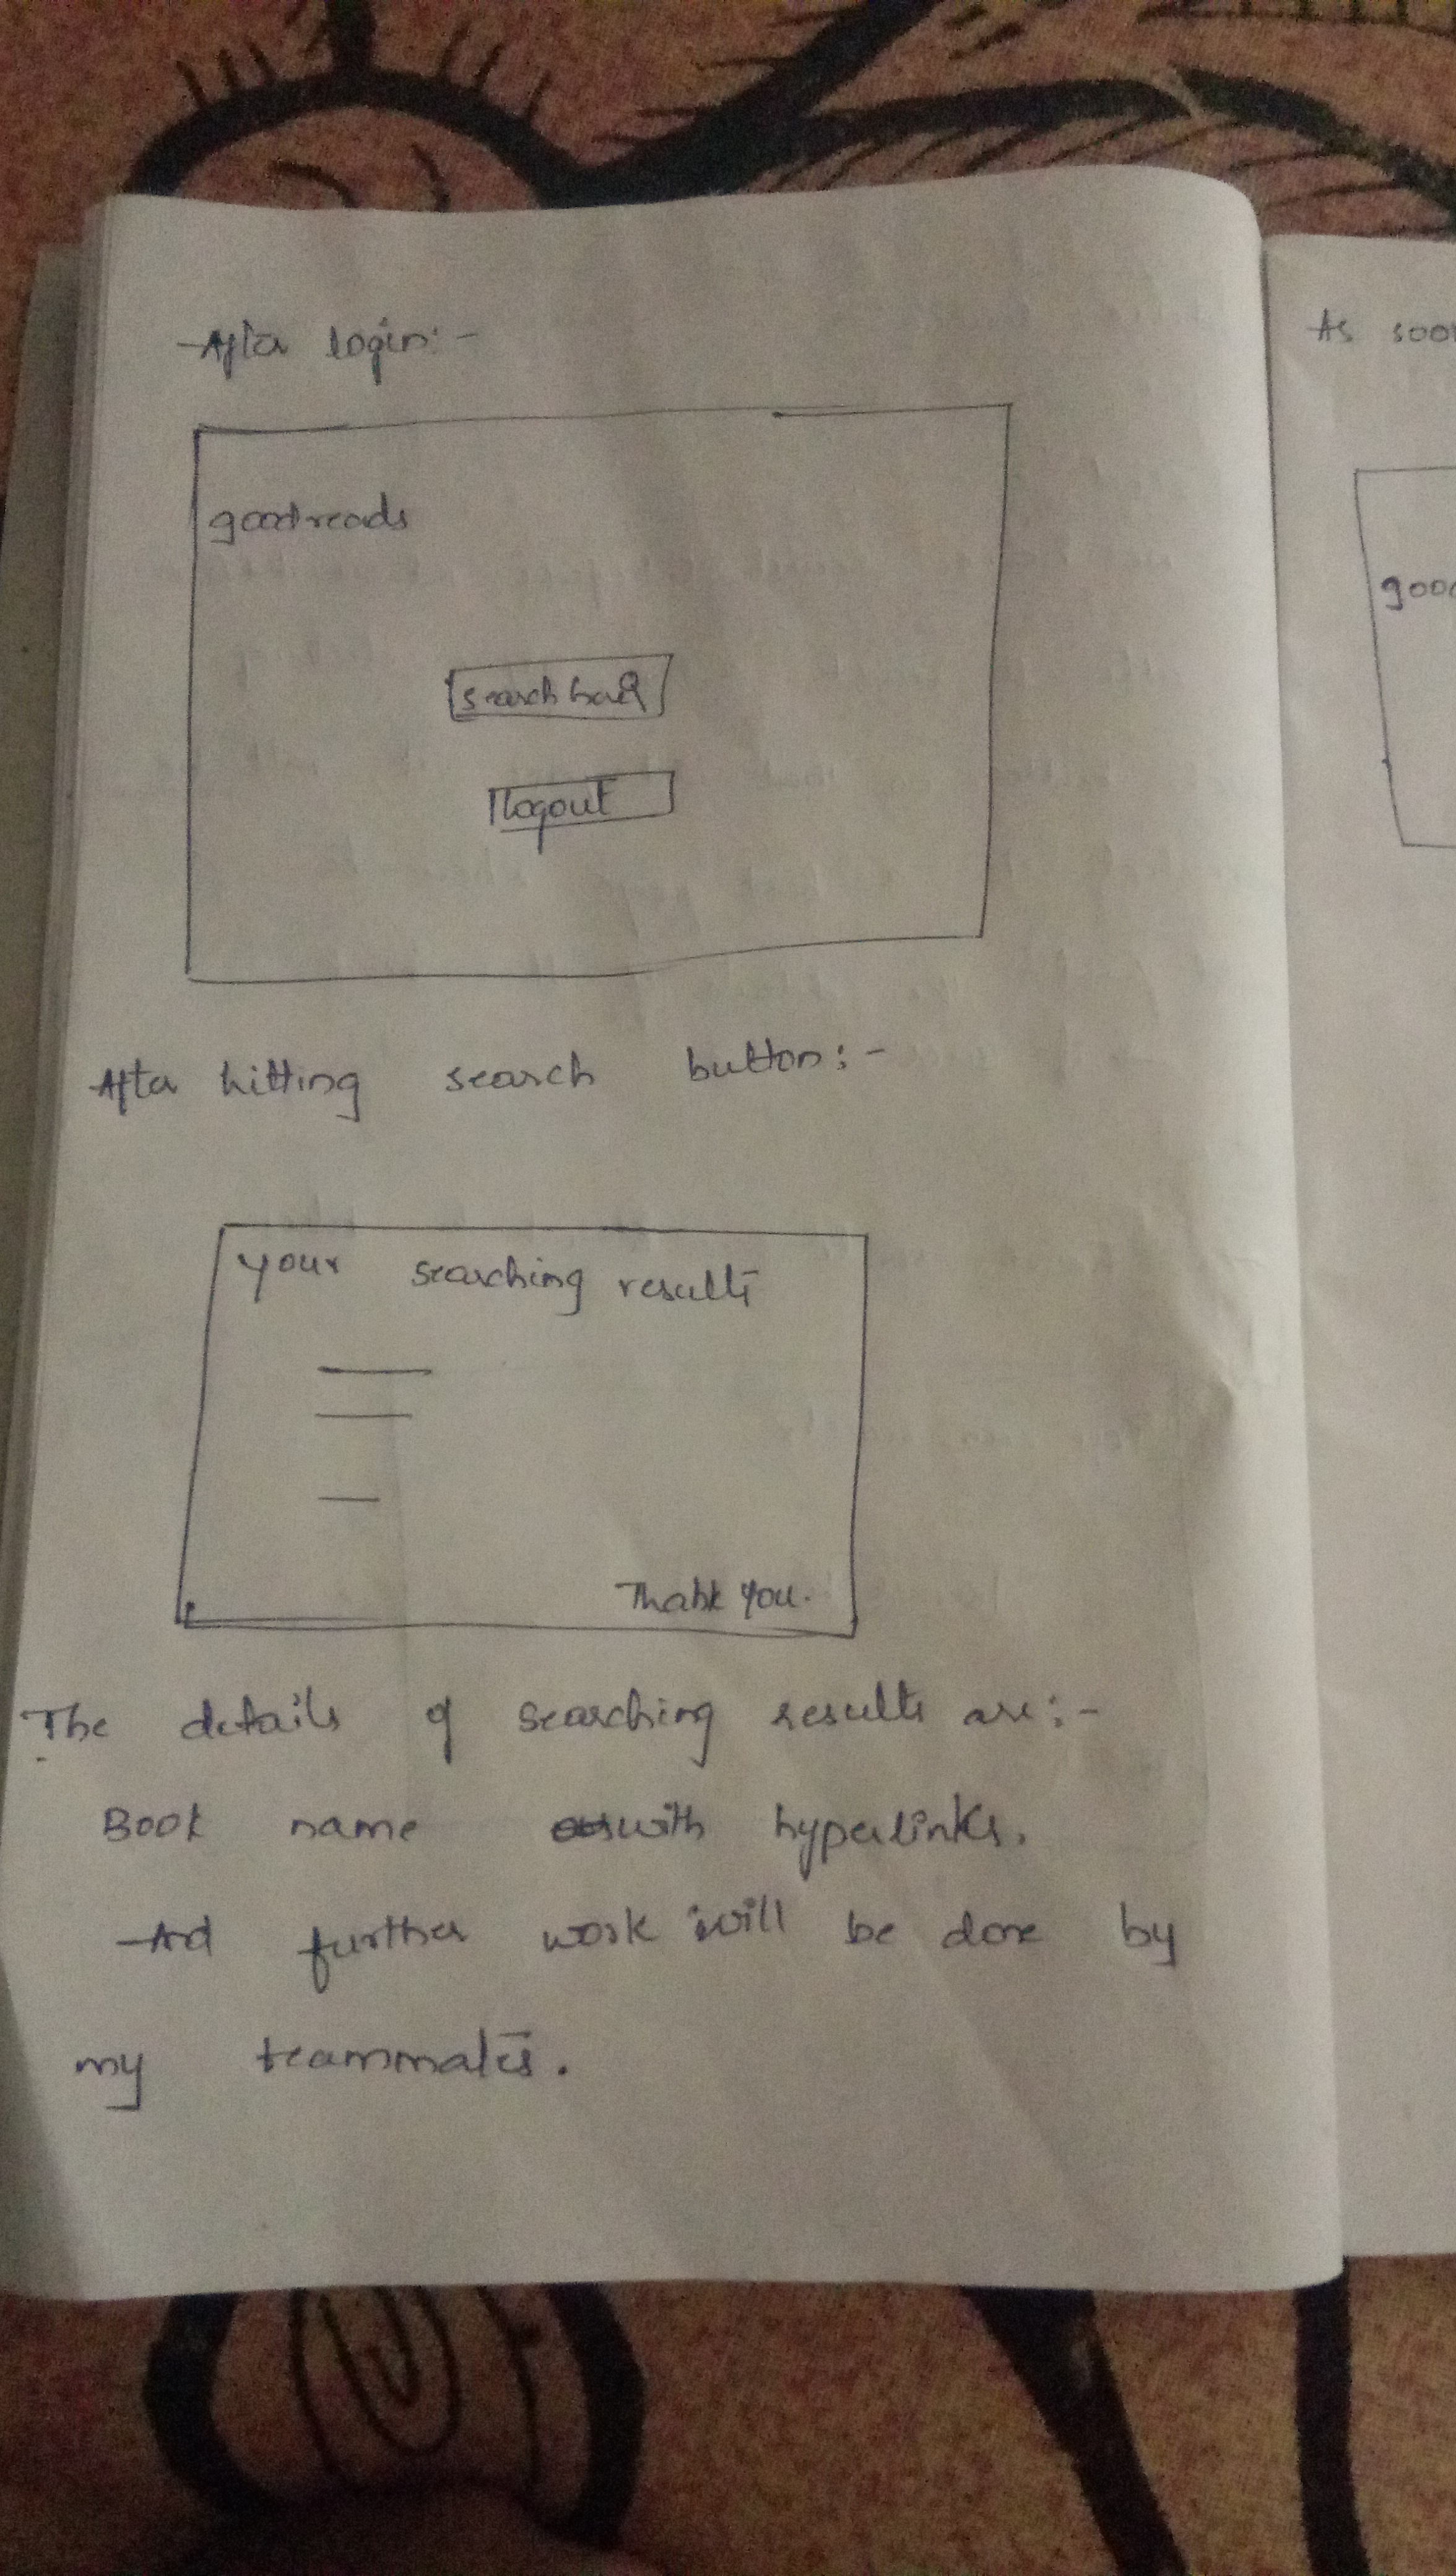 After login:-
goodreads
search bar
logout
After hitting search button:-
your searching results
Thank you.
The details of searching results are:-
Book name with hyperlinks.
And further work will be done by
my teammates.
As soon
good